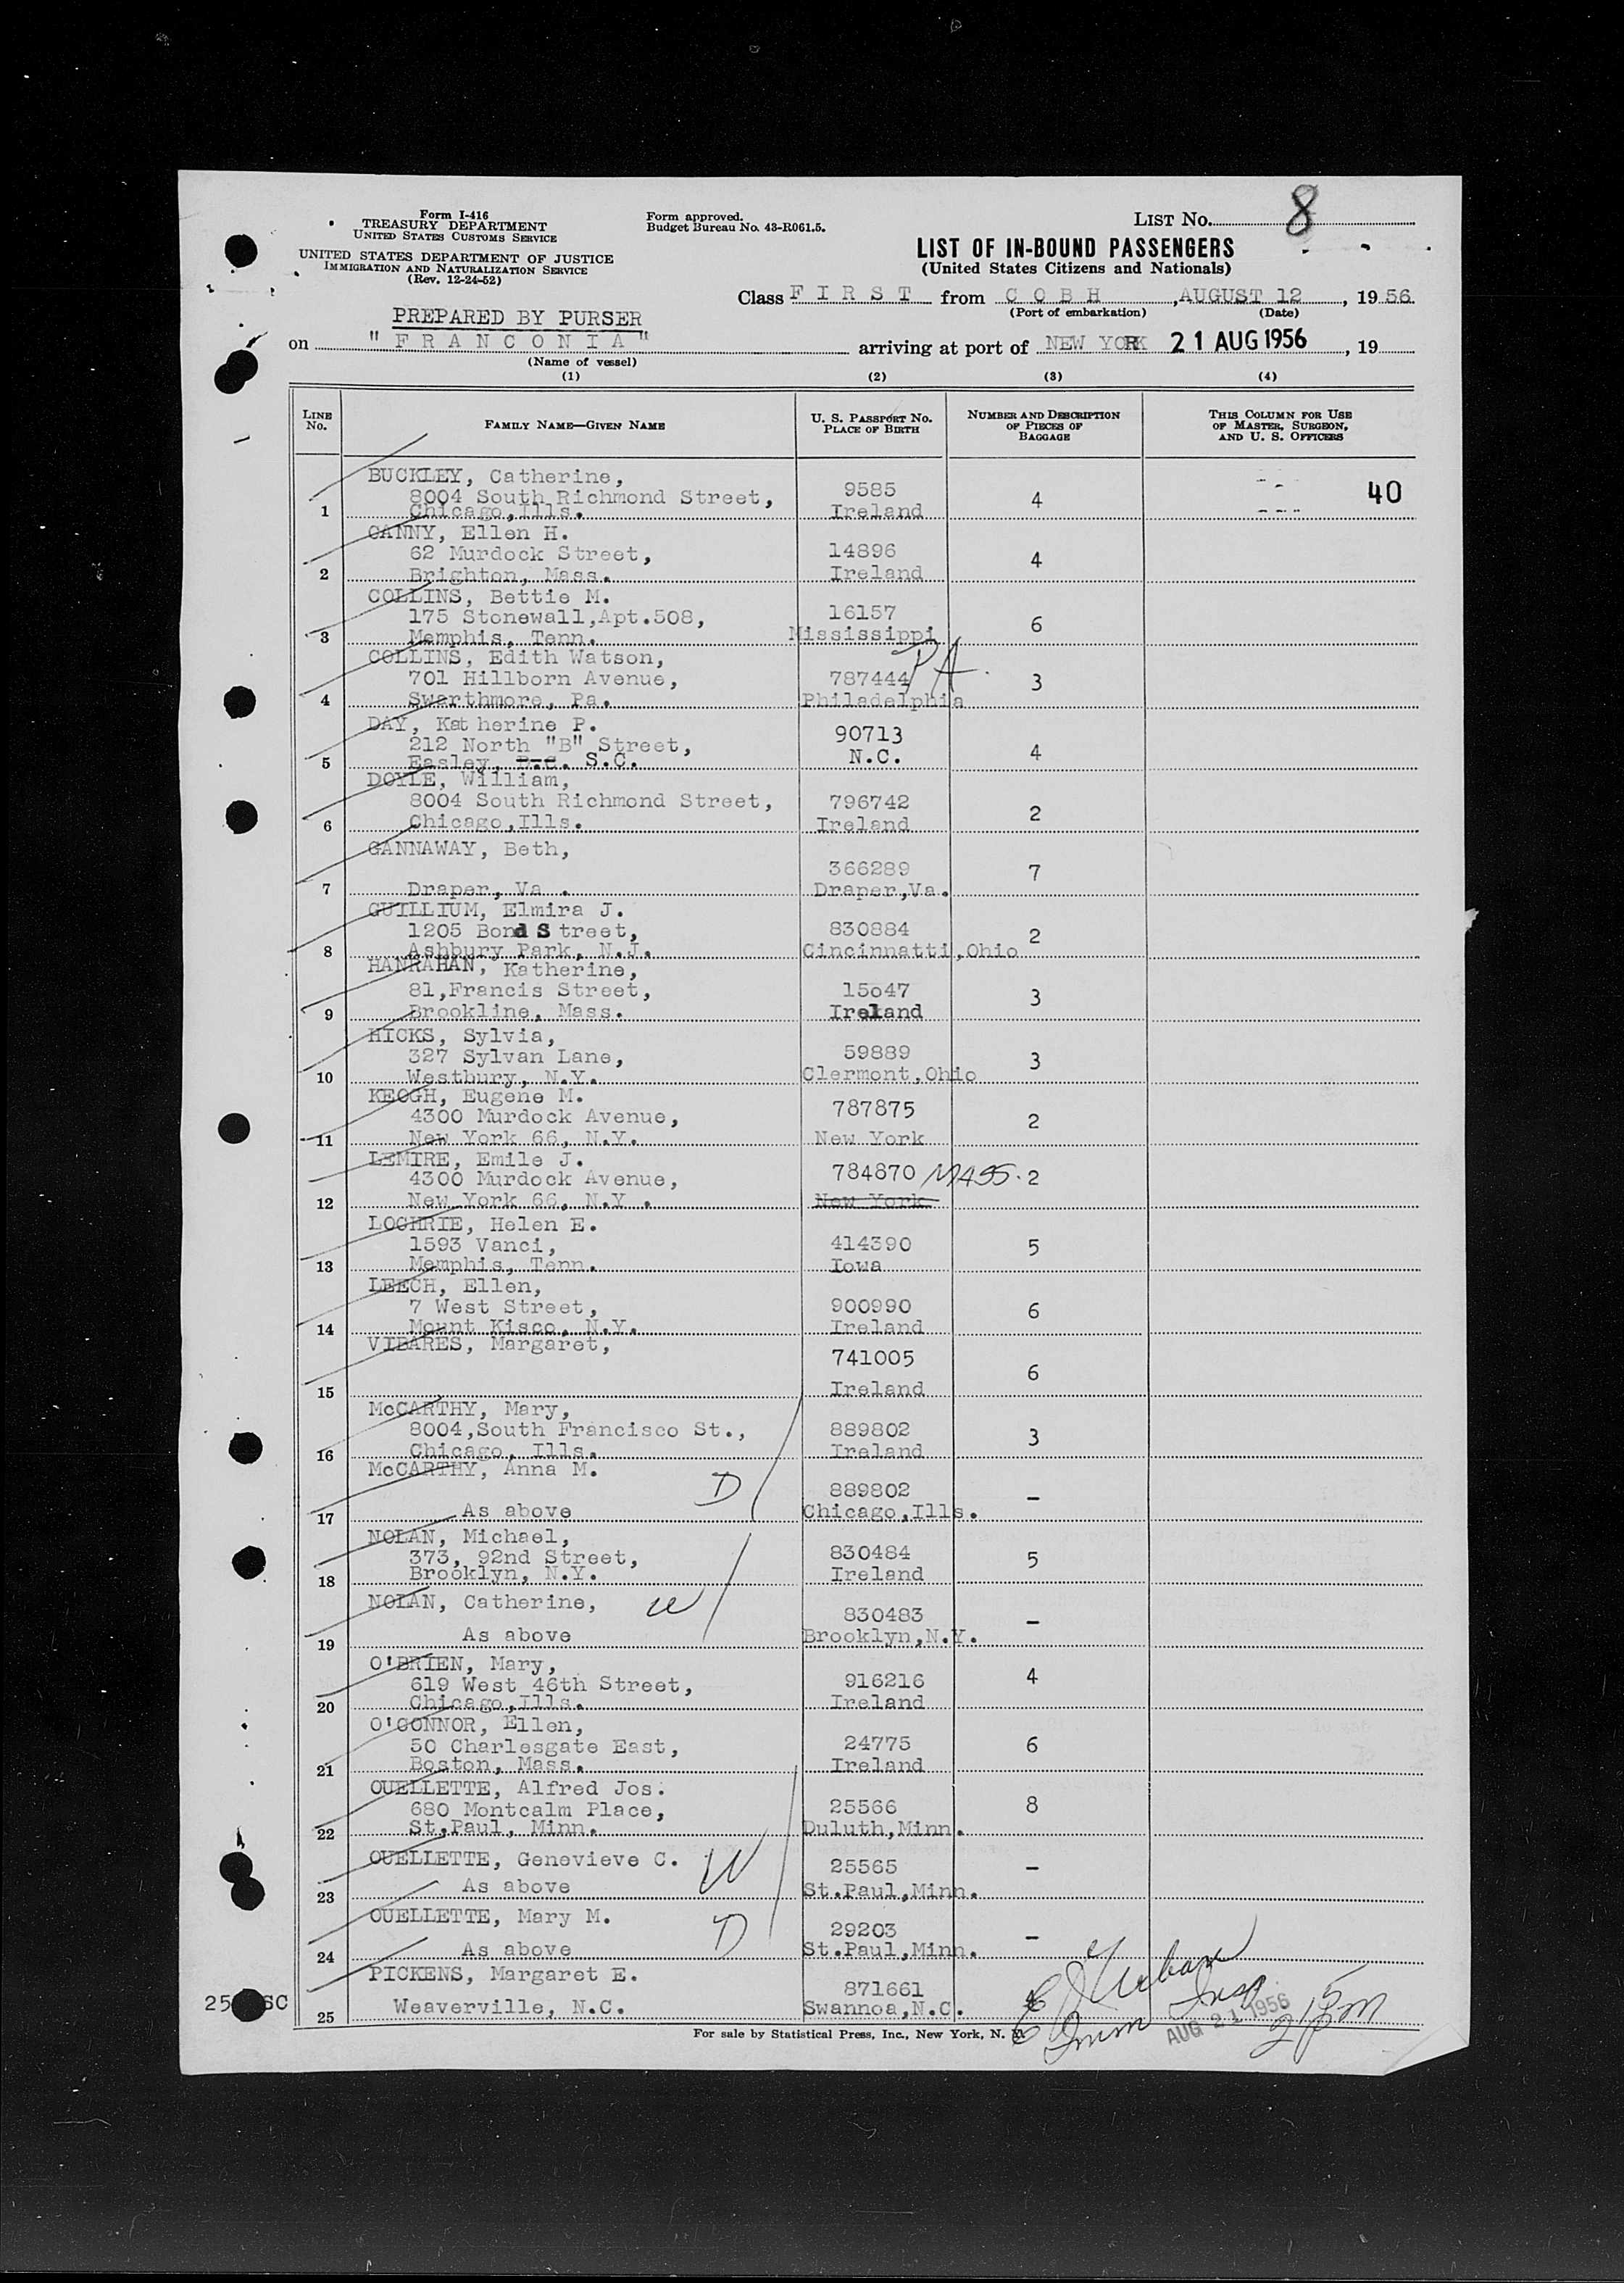 Form I-416
TREASURY DEPARTMENT
UNITED STATES CUSTOMS SERVICE
UNITED STATES DEPARTMENT OF JUSTICE
IMMIGRATION AND NATURALIZATION SERVICE
(Rev. 12-24-52)
Form approved.
Budget Bureau No. 43-R061.5.
LIST No. 8
LIST OF IN-BOUND PASSENGERS
(United States Citizens and Nationals)
Class FIRST from COBH, AUGUST 12, 1956
(Port of embarkation) (Date)
PREPARED BY PURSER
on "FRANCONIA" arriving at port of NEW YORK 21 AUG 1956, 19
(Name of vessel)
(1) (2) (3) (4)
LINE No.
FAMILY NAME—GIVEN NAME
U. S. PASSPORT No.
PLACE OF BIRTH
NUMBER AND DESCRIPTION
OF PIECES OF
BAGGAGE
THIS COLUMN FOR USE
OF MASTER, SURGEON,
AND U. S. OFFICERS
BUCKLEY, Catherine,
8004 South Richmond Street, 9585 4 40
1 Chicago,Ills. Ireland
CANNY, Ellen H.
62 Murdock Street, 14896 4
2 Brighton, Mass. Ireland
COLLINS, Bettie M.
175 Stonewall,Apt.508, 16157 6
3 Memphis, Tenn. Mississippi
COLLINS, Edith Watson, PA.
701 Hillborn Avenue, 787444 3
4 Swarthmore, Pa. Philadelphia
DAY, Katherine P.
212 North "B" Street, 90713 4
5 Easley, S.C. N.C.
DOYLE, William,
8004 South Richmond Street, 796742 2
6 Chicago,Ills. Ireland
GANNAWAY, Beth,
366289 7
7 Draper, Va . Draper,Va.
GUILLIUM, Elmira J.
1205 Bond Street, 830884 2
8 Ashbury Park, N.J. Cincinnatti,Ohio
HANRAHAN, Katherine,
81,Francis Street, 15o47 3
9 Brookline, Mass. Ireland
HICKS, Sylvia,
327 Sylvan Lane, 59889 3
10 Westbury, N.Y. Clermont,Ohio
KEOGH, Eugene M.
4300 Murdock Avenue, 787875 2
11 New York 66, N.Y. New York
LEMIRE, Emile J.
4300 Murdock Avenue, 784870 MASS. 2
12 New York 66, N.Y . New York
LOCHRIE, Helen E.
1593 Vanci, 414390 5
13 Memphis, Tenn. Iowa
LEECH, Ellen,
7 West Street, 900990 6
14 Mount Kisco, N.Y. Ireland
VIBARES, Margaret,
741005 6
15 Ireland
McCARTHY, Mary,
8004,South Francisco St., 889802 3
16 Chicago, Ills. Ireland
McCARTHY, Anna M.
D 889802 –
17 As above Chicago,Ills.
NOLAN, Michael,
373, 92nd Street, 830484 5
18 Brooklyn, N.Y. Ireland
NOLAN, Catherine, W
830483 –
19 As above Brooklyn,N.Y.
O'BRIEN, Mary,
619 West 46th Street, 916216 4
20 Chicago,Ills. Ireland
O'CONNOR, Ellen,
50 Charlesgate East, 24775 6
21 Boston, Mass. Ireland
OUELLETTE, Alfred Jos.
680 Montcalm Place, 25566 8
22 St.Paul, Minn. Duluth,Minn.
OUELLETTE, Genevieve C. W 25565 –
23 As above St.Paul,Minn.
OUELLETTE, Mary M. D 29203 –
24 As above St.Paul,Minn.
PICKENS, Margaret E.
871661
25 Weaverville, N.C. Swannoa,N.C.
E J Urban
Imm Insp
AUG 21 1956
215 pm
For sale by Statistical Press, Inc., New York, N. Y.